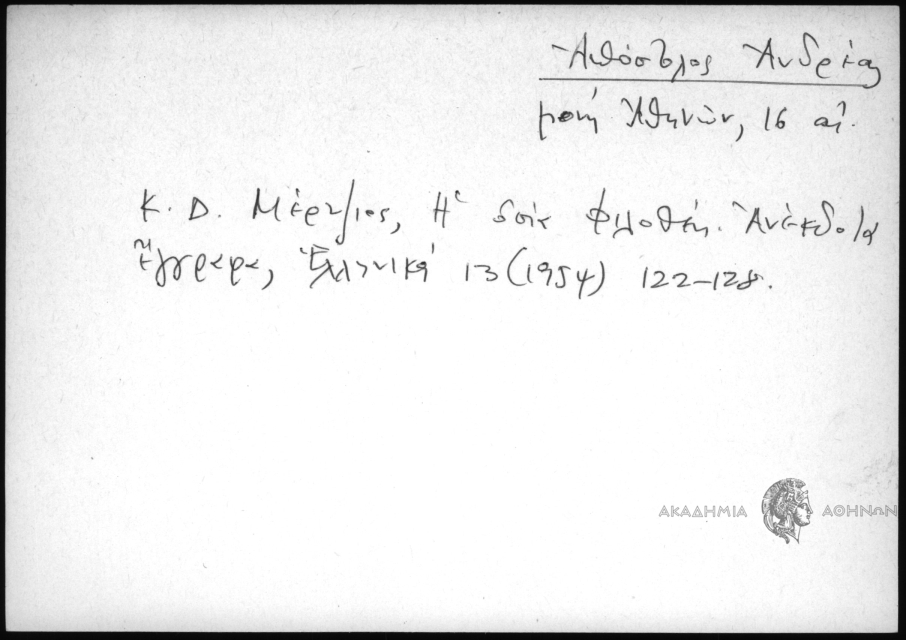 Ἀπόστολος Ἀνδρέας
μονή Ἀθηνῶν, 16 αἰ.
Κ. Δ. Μέρτζιος, Ἡ ὁσία Φιλοθέη. Ἀνέκδοτα
ἔγγραφα, Ἑλληνικά 13 (1954) 122-128.
ΑΚΑΔΗΜΙΑ ΑΘΗΝΩΝ